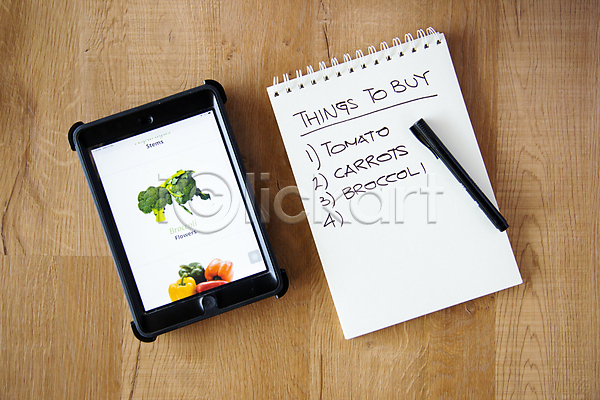 Stems
Flowers
THINGS TO BUY
1) TOMATO
2) CARROTS
3) BROCCOLI
4)
iclickart